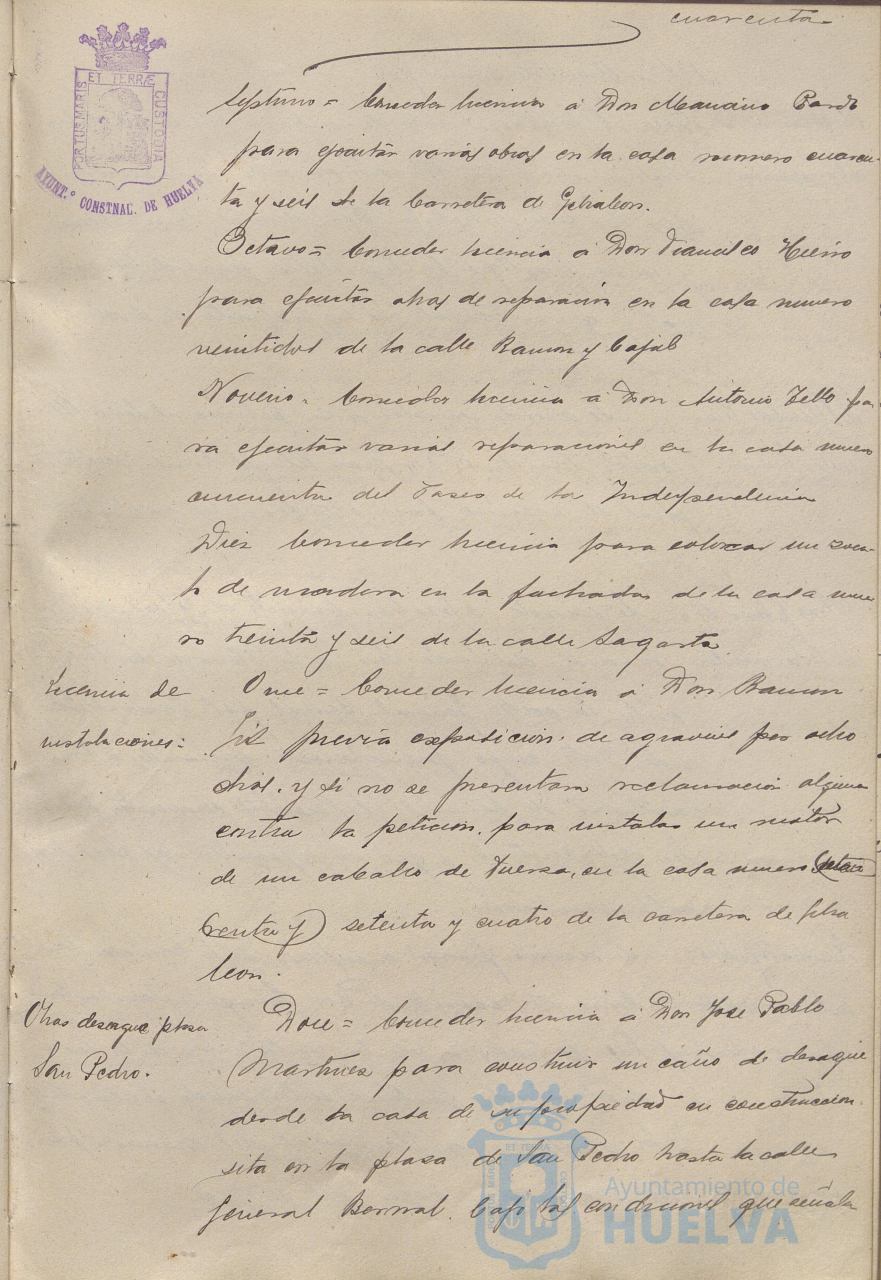 cuarenta
ET TERRÆ
PORTUS MARIS
CUSTODIA
AYUNT.º CONSTNAL. DE HUELVA
Septimo = Conceder licencia á Don Mariano Pardo
para ejecutar varias obras en la casa numero cuaren-
ta y seis de la Carretera de Gibraleon.
Octavo = Conceder licencia á Don Francisco Hierro
para ejecutar obras de reparación en la casa numero
veintidos de la calle Ramon y Cajal
Noveno = Conceder licencia á Don Antonio Tello pa
ra ejecutar varias reparaciones en la casa numero
cincuenta del Paseo de la Independencia
Diez Conceder licencia para colocar un zoca-
lo de madera en la fachada de la casa nume
ro treinta y seis de la calle Sagasta
Licencia de
instalaciones:
Once = Conceder licencia á Don Ramon
Gil previa exposicion de agravios por ocho
dias. y si no se presentara reclamación alguna
contra la peticion, para instalar un motor
de un caballo de fuerza, en la casa numero
y) setenta y cuatro de la carretera de Gibra
leon.
Obras desague plaza
San Pedro.
Doce = Conceder licencia á Don Jose Pablo
Martinez para construir un caño de desagüe
desde la casa de su propiedad en construccion
sita en la plaza de San Pedro hasta la calle
General Bernal. bajo las condiciones que señala
Ayuntamiento de
HUELVA